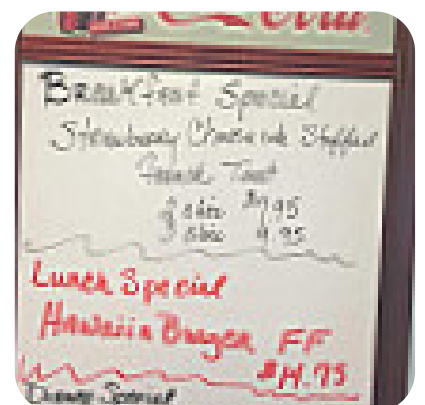 Breakfast Special
Strawberry Cheesecake Stuffed
French Toast
2 slic $7.95
3 slic 9.95
Lunch Special
Hawaiin Burger FF
$14.75
Dinner Special